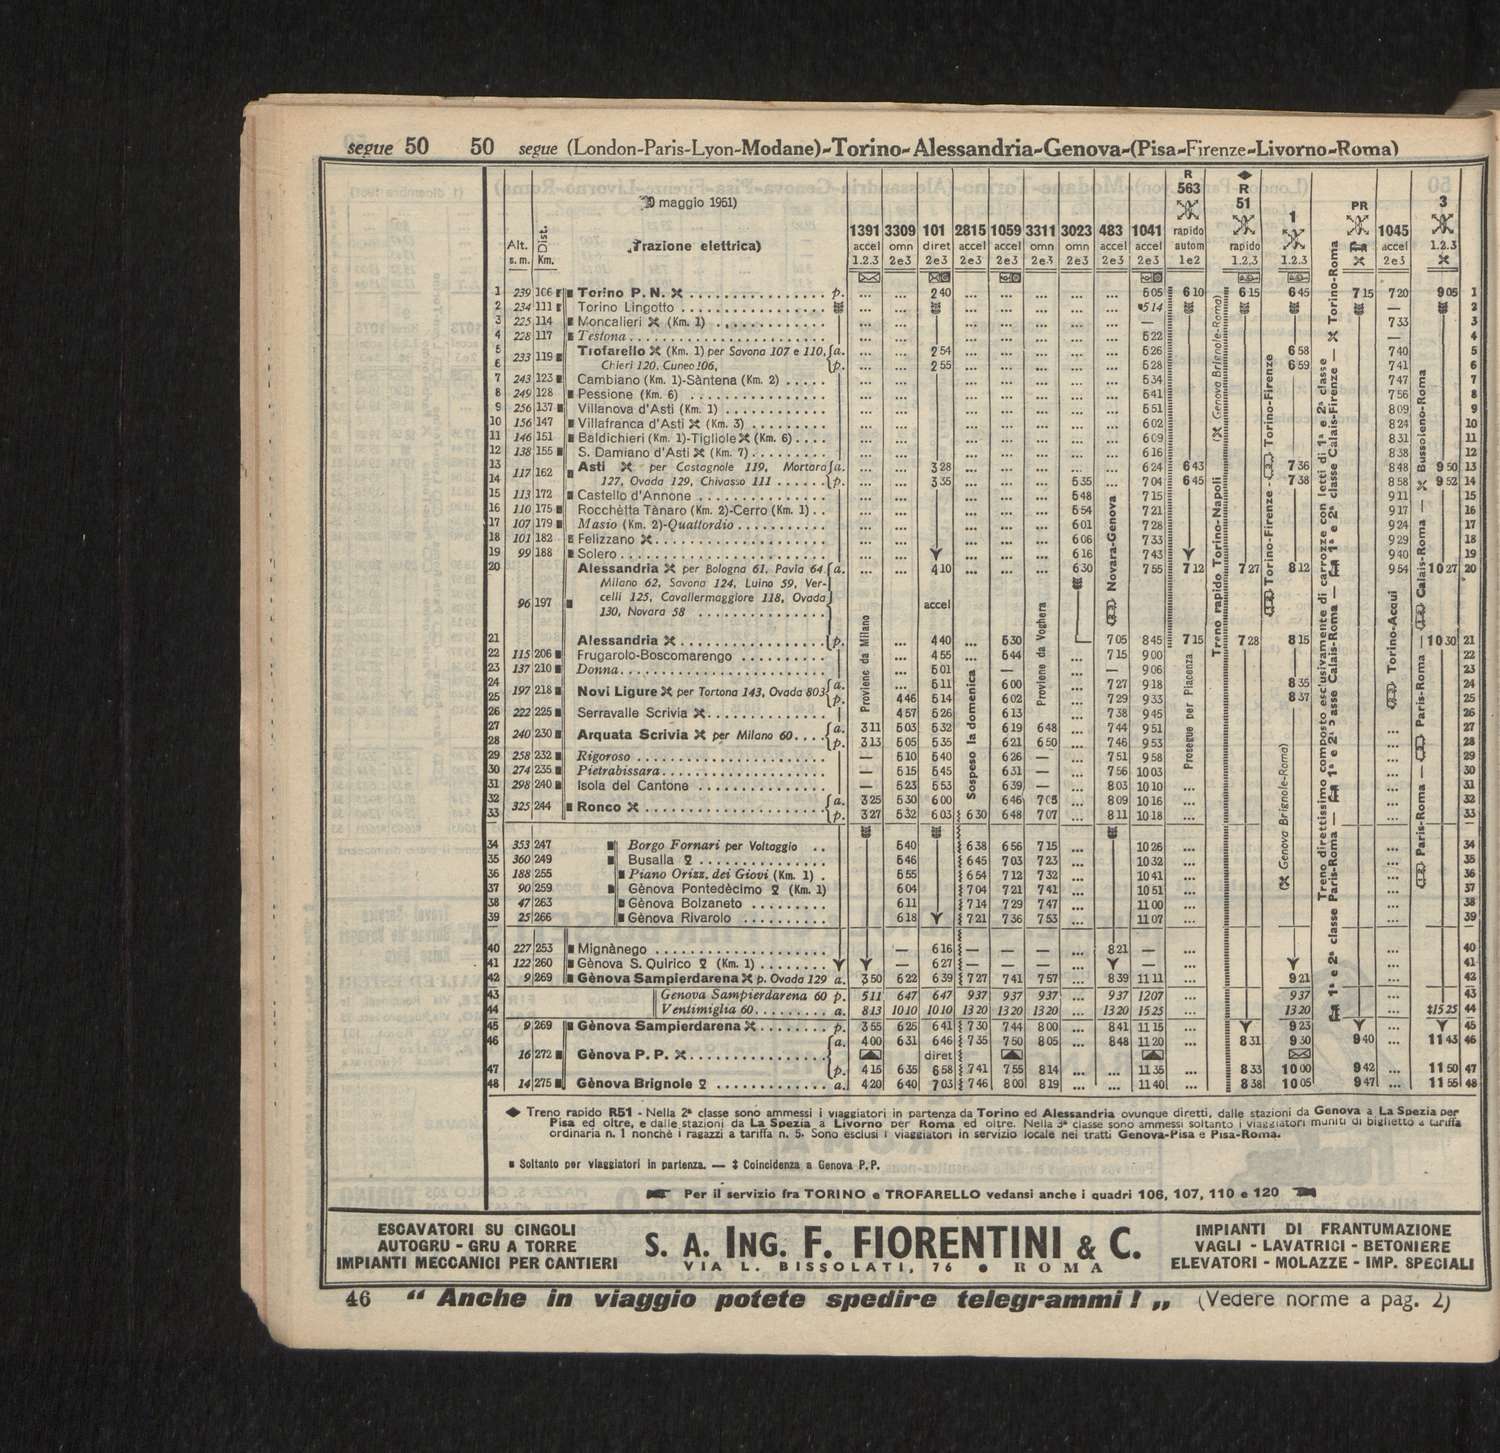 segue 50 50 segue (London-Paris-Lyon-Modane)-Torino-Alessandria-Genova-(Pisa-Firenze-Livorno-Roma)
maggio 1951)
(Trazione elettrica)
Alt. s. m. Dist. Km.
1391 accel 1.2.3
3309 omn 2e3
101 diret 2e3
2815 accel 2e3
1059 accel 2e3
3311 omn 2e3
3023 omn 2e3
483 accel 2e3
1041 accel 2e3
R 563 rapido autom 1e2
◆ R 51 rapido 1.2.3
1 1.2.3
PR
1045 accel 2e3
3 1.2.3
1 239 106 Torino P. N. p. ... ... 2 40 ... ... ... ... ... 5 05 6 10 6 15 6 45 7 15 7 20 9 05 1
2 234 111 Torino Lingotto ... ... ... ... ... ... ... *5 14 — 2
3 225 114 Moncalieri (Km. 1) ... ... ... ... ... ... ... — 7 33 3
4 228 117 Testona ... ... ... ... ... ... ... 5 22 — 4
5 233 119 Trofarello (Km. 1) per Savona 107 e 110, a. ... ... 2 54 ... ... ... ... ... 5 26 6 58 7 40 5
6 Chieri 120, Cuneo 106, p. ... ... 2 55 ... ... ... ... ... 5 28 6 59 7 41 6
7 243 123 Cambiano (Km. 1)-Sàntena (Km. 2) ... ... ... ... ... ... ... 5 34 7 47 7
8 249 128 Pessione (Km. 6) ... ... ... ... ... ... ... 5 41 7 56 8
9 256 137 Villanova d'Asti (Km. 1) ... ... ... ... ... ... ... 5 51 8 09 9
10 156 147 Villafranca d'Asti (Km. 3) ... ... ... ... ... ... ... 6 02 8 24 10
11 146 151 Baldichieri (Km. 1)-Tigliole (Km. 6) ... ... ... ... ... ... ... 6 09 8 31 11
12 138 155 S. Damiano d'Asti (Km. 7) ... ... ... ... ... ... ... 6 16 8 38 12
13 117 162 Asti per Castagnole 119, Mortara a. ... ... 3 28 ... ... ... ... ... 6 24 6 43 7 36 8 48 9 50 13
14 127, Ovada 129, Chivasso 111 p. ... ... 3 35 ... ... ... 5 35 7 04 6 45 7 38 8 58 9 52 14
15 113 172 Castello d'Annone ... ... ... ... ... 5 48 7 15 9 11 15
16 110 175 Rocchètta Tànaro (Km. 2)-Cerro (Km. 1) ... ... ... ... ... 5 54 7 21 9 17 16
17 107 179 Masio (Km. 2)-Quattordio ... ... ... ... ... 6 01 7 28 9 24 17
18 101 182 Felizzano ... ... ... ... ... 6 06 7 33 9 29 18
19 99 188 Solero ... ... ... ... ... 6 16 7 43 9 40 19
20 Alessandria per Bologna 61, Pavia 64 a. ... ... 4 10 ... ... ... 6 30 7 55 7 12 7 27 8 12 9 54 10 27 20
Milano 62, Savona 124, Luino 59, Ver-
96 197 celli 125, Cavallermaggiore 118, Ovada accel
130, Novara 58
21 Alessandria p. ... 4 40 5 30 7 05 8 45 7 15 7 28 8 15 10 30 21
22 115 206 Frugarolo-Boscomarengo ... 4 55 5 44 ... 7 15 9 00 22
23 137 210 Donna ... 5 01 — ... — 9 06 23
24 197 218 Novi Ligure per Tortona 143, Ovada 803 a. ... 5 11 6 00 ... 7 27 9 18 8 35 24
25 p. 4 46 5 14 6 02 ... 7 29 9 33 8 37 25
26 222 225 Serravalle Scrivia 4 57 5 26 6 13 ... 7 38 9 45 26
27 240 230 Arquata Scrivia per Milano 60 a. 3 11 5 03 5 32 6 19 6 48 ... 7 44 9 51 ... 27
28 p. 3 13 5 05 5 35 6 21 6 50 ... 7 46 9 53 ... 28
29 258 232 Rigoroso — 5 10 5 40 6 26 — ... 7 51 9 58 ... 29
30 274 235 Pietrabissara — 5 15 5 45 6 31 — ... 7 56 10 03 ... 30
31 298 240 Isola del Cantone — 5 23 5 53 6 39 — ... 8 03 10 10 ... ... 31
32 325 244 Ronco a. 3 25 5 30 6 00 6 46 7 05 ... 8 09 10 16 ... ... 32
33 p. 3 27 5 32 6 03 6 30 6 48 7 07 ... 8 11 10 18 ... ... 33
34 353 247 Borgo Fornari per Voltaggio 5 40 6 38 6 56 7 15 ... 10 26 ... ... 34
35 360 249 Busalla 5 46 6 45 7 03 7 23 ... 10 32 ... ... 35
36 188 255 Piano Orizz. dei Giovi (Km. 1) 5 55 6 54 7 12 7 32 ... 10 41 ... ... 36
37 90 259 Gènova Pontedècimo (Km. 1) 6 04 7 04 7 21 7 41 ... 10 51 ... ... 37
38 47 263 Gènova Bolzaneto 6 11 7 14 7 29 7 47 ... 11 00 ... ... 38
39 25 266 Gènova Rivarolo 6 18 7 21 7 36 7 53 ... 11 07 ... ... 39
40 227 253 Mignànego — 6 16 — — — ... 8 21 — ... ... 40
41 122 260 Gènova S. Quirico (Km. 1) — 6 27 — — — ... — ... ... 41
42 9 269 Gènova Sampierdarena p. Ovada 129 a. 3 50 6 22 6 39 7 27 7 41 7 57 ... 8 39 11 11 ... 9 21 ... 42
43 Genova Sampierdarena 60 p. 5 11 6 47 6 47 9 37 9 37 9 37 ... 9 37 12 07 ... 9 37 ... 43
44 Ventimiglia 60 a. 8 13 10 10 10 10 13 20 13 20 13 20 ... 13 20 15 25 ... 13 20 ... ‡15 25 44
45 9 269 Gènova Sampierdarena p. 3 55 6 25 6 41 7 30 7 44 8 00 ... 8 41 11 15 ... 9 23 ... 45
46 a. 4 00 6 31 6 46 7 35 7 50 8 05 ... 8 48 11 20 ... 8 31 9 30 9 40 ... 11 43 46
16 272 Gènova P. P. diret
47 p. 4 15 6 35 6 58 7 41 7 55 8 14 ... ... 11 35 ... 8 33 10 00 9 42 ... 11 50 47
48 14 275 Gènova Brignole a. 4 20 6 40 7 03 7 46 8 00 8 19 ... ... 11 40 ... 8 38 10 05 9 47 ... 11 55 48
Proviene da Milano
Sospeso la domenica
Proviene da Voghera
Novara-Genova
Prosegue per Piacenza
Treno rapido Torino-Napoli (Genova Brignole-Roma)
Torino-Firenze - Torino-Firenze
(Genova Brignole-Roma)
Treno direttissimo composto esclusivamente di carrozze con letti di 1ª e 2ª classe
1ª e 2ª classe Paris-Roma — 1ª e 2ª classe Calais-Roma — 1ª e 2ª classe Calais-Firenze — Torino-Roma
Torino-Acqui
Paris-Roma — Paris-Roma — Calais-Roma — Bussoleno-Roma
◆ Treno rapido R51 - Nella 2ª classe sono ammessi i viaggiatori in partenza da Torino ed Alessandria ovunque diretti, dalle stazioni da Genova a La Spezia per
Pisa ed oltre, e dalle stazioni da La Spezia a Livorno per Roma ed oltre. Nella 3ª classe sono ammessi soltanto i viaggiatori muniti di biglietto a tariffa
ordinaria n. 1 nonchè i ragazzi a tariffa n. 5. Sono esclusi i viaggiatori in servizio locale nei tratti Genova-Pisa e Pisa-Roma.
■ Soltanto per viaggiatori in partenza. — ‡ Coincidenza a Genova P. P.
Per il servizio fra TORINO e TROFARELLO vedansi anche i quadri 106, 107, 110 e 120
ESCAVATORI SU CINGOLI
AUTOGRU - GRU A TORRE
IMPIANTI MECCANICI PER CANTIERI
S. A. ING. F. FIORENTINI & C.
VIA L. BISSOLATI, 76 ● ROMA
IMPIANTI DI FRANTUMAZIONE
VAGLI - LAVATRICI - BETONIERE
ELEVATORI - MOLAZZE - IMP. SPECIALI
46 “ Anche in viaggio potete spedire telegrammi! „ (Vedere norme a pag. 2)